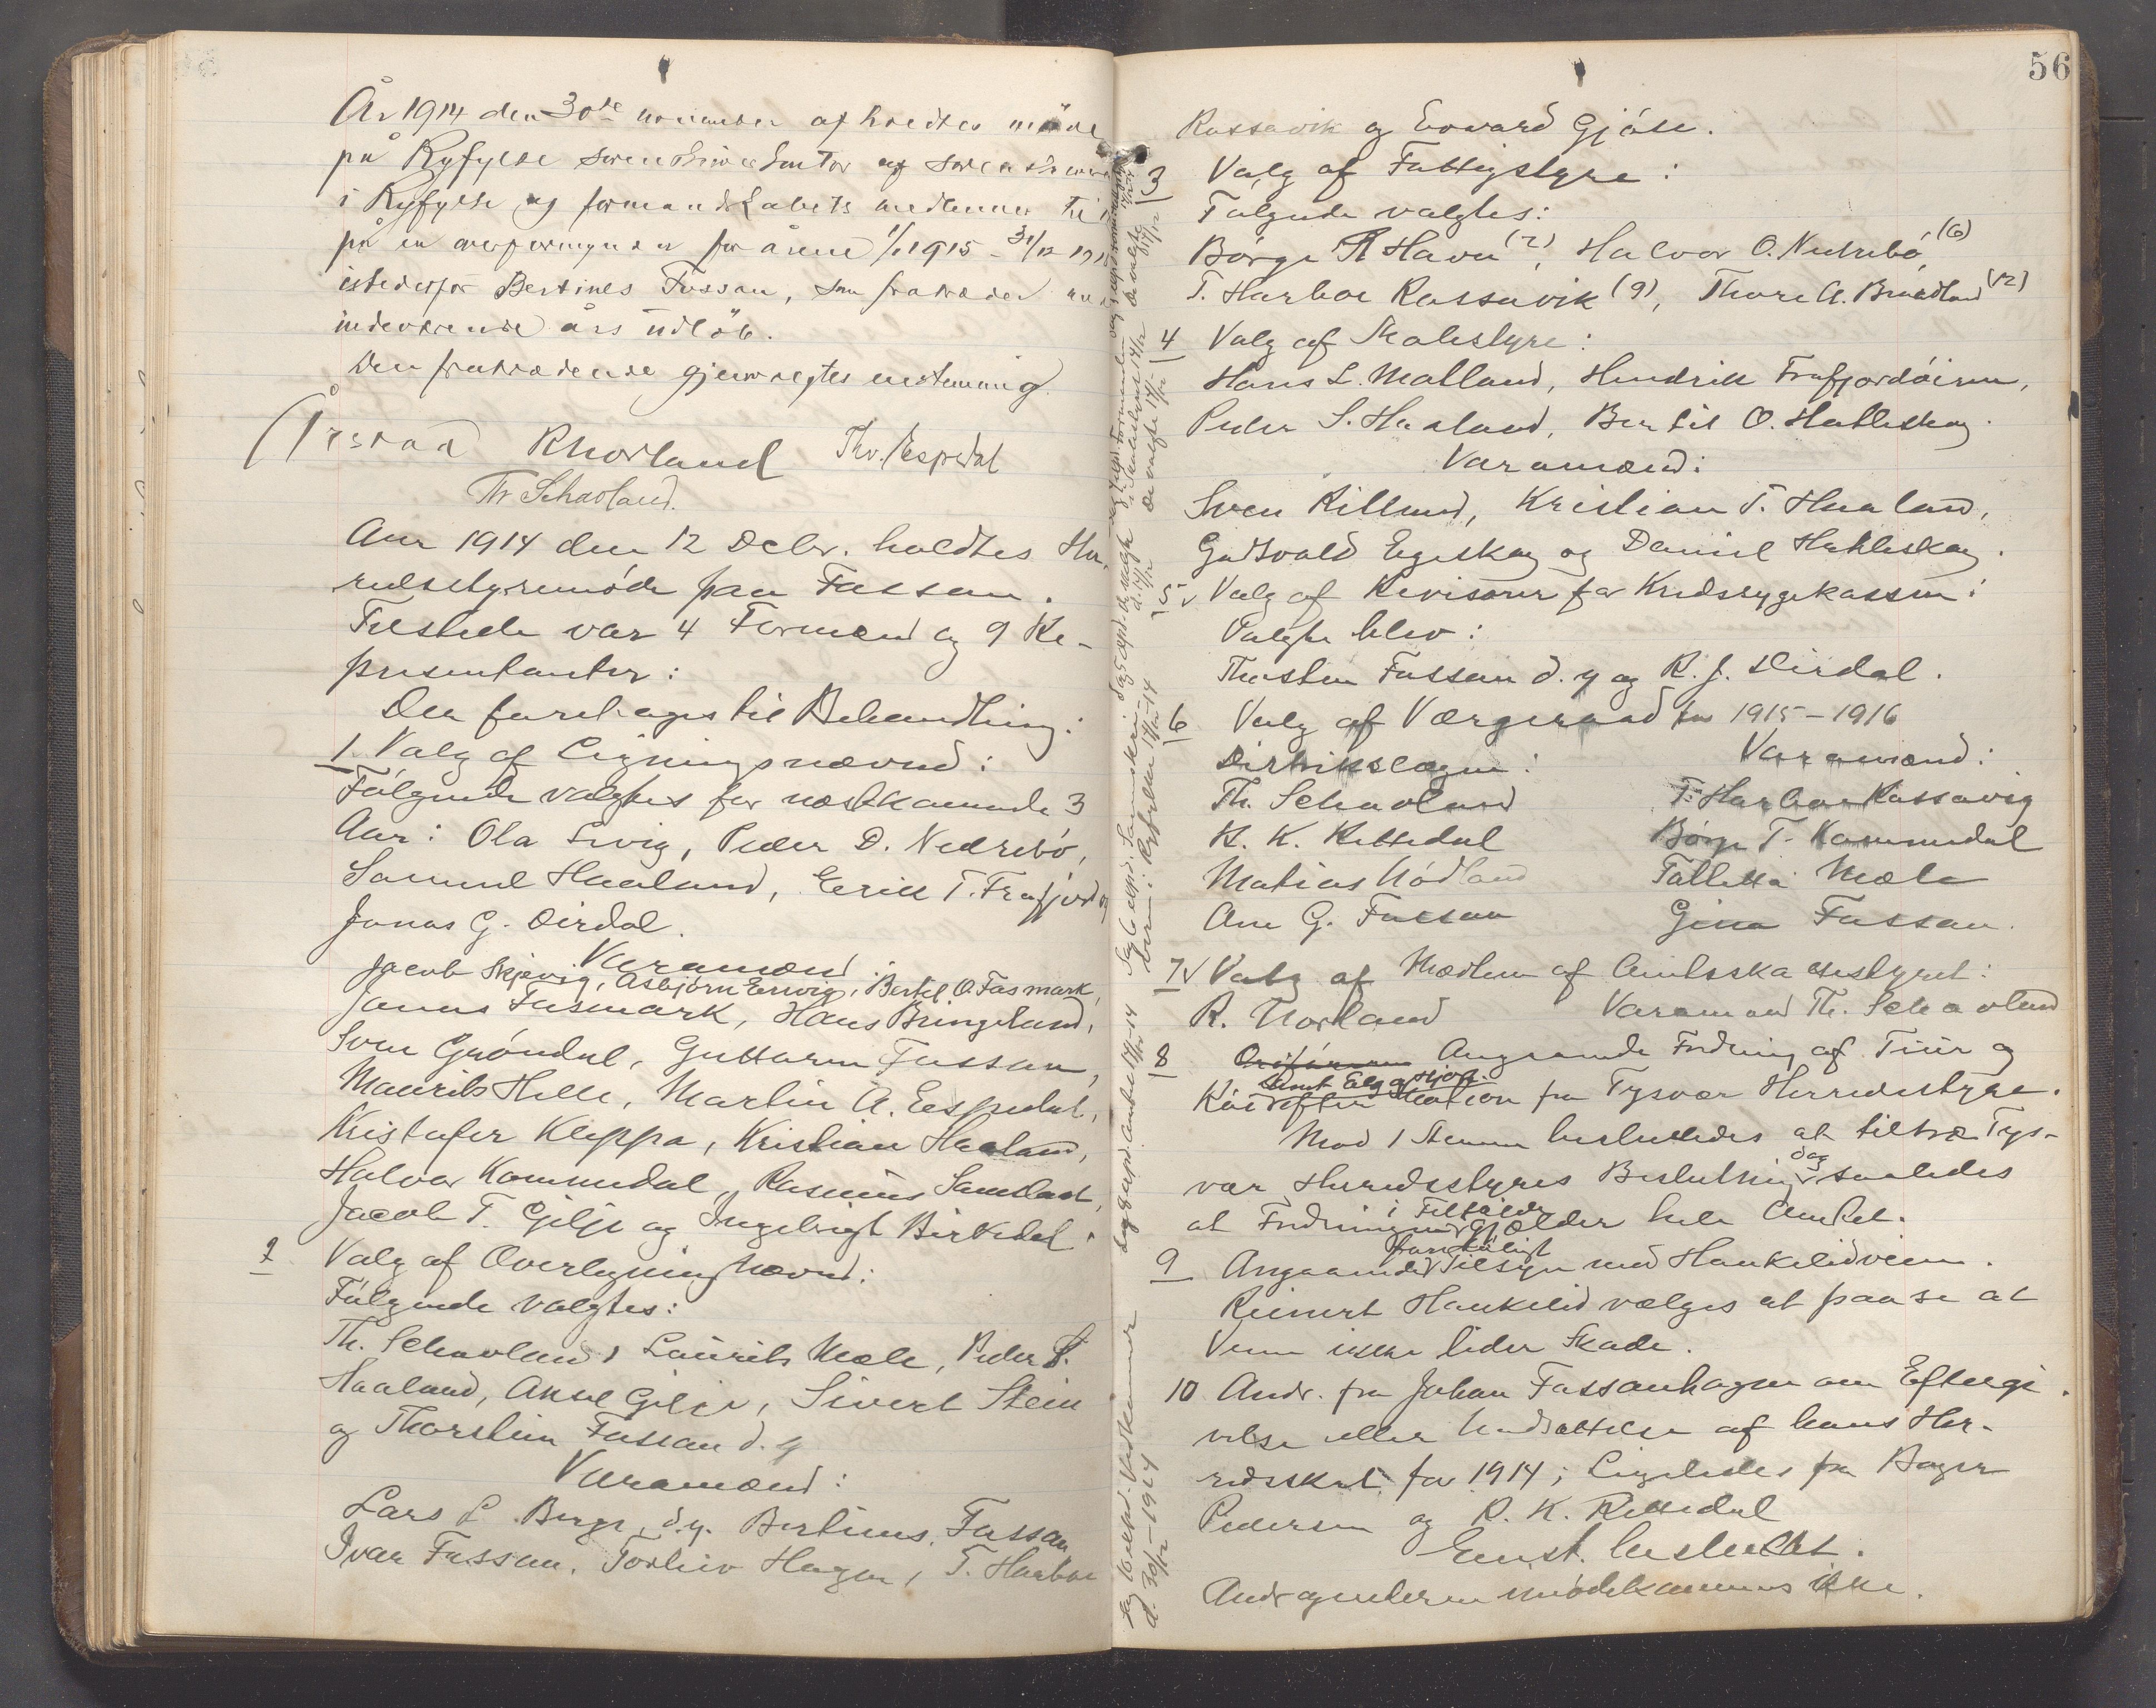 År 1914 den 30te november afholdtes møde
på Ryfylke sorenskriverkontor af sorenskriveren
i Ryfylke og formandskabets medlemmer til
på en overformynder for årene 1/1 1915 - 31/12 19
istedenfor Bertines Fossan, som fratræder ved
indeværende års udløb.
Den fratrædende gjenvalgtes enstemmig.
Årstad RNorland Thv. Espedal
Th Schavland.
Aar 1914 den 12 Decbr. holdtes Her-
redsstyremøde paa Fossan.
Tilstede var 4 Formænd og 9 Re-
præsentanter:
Der foretoges til Behandling:
1. Valg af Ligningsnævnd:
Følgende valgtes for næstkommende 3
Aar: Ola Ervig, Peder D. Nedrebø,
Samuel Haaland, Eerik T. Frafjord og
Jonas G. Dirdal.
Varamænd:
Jacob Skjævig, Asbjørn Ervig, Bertel O. Fosmark,
Jonas Fosmark, Hans Bringeland,
Sven Grøndal, Guttorm Fossan,
Maurits Helle, Martin A. Eespedal,
Kristofer Kleppa, Kristian Haaland,
Halvor Kommedal, Rasmus
Jacob T. Gilje og Ingebrigt Birkedal.
2 Valg af Overligningsnævnd:
Følgende valgtes:
Th. Schavland, Laurits Mæle, Peder S.
Haaland, Aksel Gilje, Sivert Stein
og Thorstein Fossan d. y
Varamænd:
Lars L. Berge d.y. Bertines Fossan
Ivar Fossan, Torleiv Hagen, T. Harboe
56
Rossavik og Edvard Gjøse.
3 Valg af Fattigstyre:
Følgende valgtes:
Børge R Havn (7), Halvor O. Nedrebø (6)
T. Harboe Rossavik (9), Thore A. Bradland (12)
4 Valg af Skolestyre:
Hans L. Molland, Hendrik Frafjordøiren,
Peder S. Haaland, Bertil O. Hatleskog.
Varamænd:
Sven Rettedal, Kristian T. Haaland,
Gudtvald Egeskog og Daniel Hatleskog.
5 Valg af Revisorer for Kredssygekassen:
Valgte blev:
Thorsten Fossan d. y og R. J. Dirdal.
6 Valg af Værgeraad for 1915-1916
Distrikslægen: Varamænd:
Th. Schavland T. Harboe Rossavig
K. K. Rettedal Børge T. Kommedal
Matias Nødland Tolletta Mæle
Ane G. Fossan Gina Fossan.
7 Valg af Medlem af Amtsskolestyret:
R. Norland Varamand Th. Schavland
8 Angaaende Fredning af Tiur og
samt Elg og Hjort
Røi efter Motion fra Tysvær Herredsstyre.
Mod 1 Stemme besluttedes at tiltræ Tys-
vær Herredsstyres Beslutning dog saaledes
at Fredningen i Tilfælde gjælder hele Amtet.
9 Angaaende forsøligt Tilsyn med Haukelidveien.
Reinert Haukelid vælges at paase at
Veien ikke lider Skade.
10 Andr. fra Johan Fossanhagen om Eftergi-
velse eller Nedsættelse af hans Her-
redsskat for 1914; Ligeledes fra Bager
Pedersen og R. K. Rettedal
Eenst. besluttet.
Andragenderne imødekommes ikke.